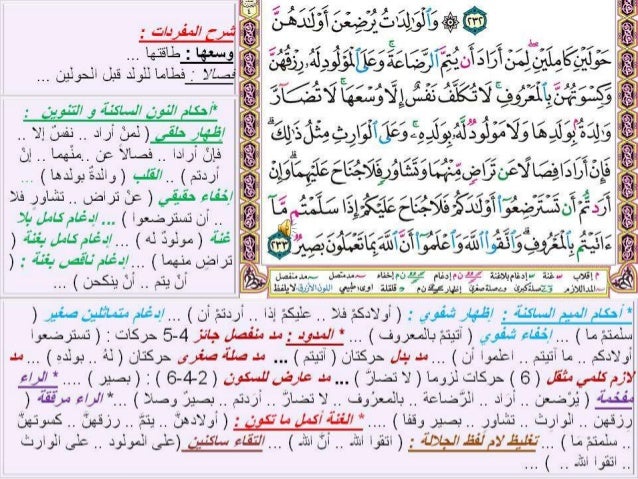 شرح المفردات :
وسعها : طاقتها ...
فصالا : فطاما للولد قبل الحولين ...
*أحكام النون الساكنة و التنوين :
إظهار حلقي ( لمنْ أراد .. نفسٌ إلا ..
فإنْ أرادا .. فصالاً عن ..منْهما .. إنْ
أردتم ) ... القلب ( والدةٌ بولدها ) ...
إخفاء حقيقي ( عنْ تراض .. تشاورٍ فلا
.. أن تسترضعوا ) ... إدغام كامل بلا
غنة ( مولودٌ له ) ... إدغام كامل بغنة (
تراضٍ منهما ) ... إدغام ناقص بغنة : (
أنْ يتم .. أنْ ينكحن ) ...
۞ وَٱلْوَٰلِدَٰتُ يُرْضِعْنَ أَوْلَٰدَهُنَّ
حَوْلَيْنِ كَامِلَيْنِ لِمَنْ أَرَادَ أَن يُتِمَّ ٱلرَّضَاعَةَ وَعَلَى ٱلْمَوْلُودِ لَهُۥ رِزْقُهُنَّ
وَكِسْوَتُهُنَّ بِٱلْمَعْرُوفِ لَا تُكَلَّفُ نَفْسٌ إِلَّا وُسْعَهَا لَا تُضَآرَّ
وَٰلِدَةٌۢ بِوَلَدِهَا وَلَا مَوْلُودٌ لَّهُۥ بِوَلَدِهِۦ وَعَلَى ٱلْوَارِثِ مِثْلُ ذَٰلِكَ
فَإِنْ أَرَادَا فِصَالًا عَن تَرَاضٍ مِّنْهُمَا وَتَشَاوُرٍ فَلَا جُنَاحَ عَلَيْهِمَا وَإِنْ
أَرَدتُّمْ أَن تَسْتَرْضِعُوٓا۟ أَوْلَٰدَكُمْ فَلَا جُنَاحَ عَلَيْكُمْ إِذَا سَلَّمْتُم مَّآ
ءَاتَيْتُم بِٱلْمَعْرُوفِ وَٱتَّقُوا۟ ٱللَّهَ وَٱعْلَمُوٓا۟ أَنَّ ٱللَّهَ بِمَا تَعْمَلُونَ بَصِيرٌ ٢٣٣
* أحكام الميم الساكنة : إظهار شفوي : ( أولادكمْ فلا .. عليكمْ إذا .. أردتمْ أن ) ... إدغام متماثلين صغير (
سلمتمْ ما ) ... إخفاء شفوي ( آتيتمْ بالمعروف ) ... * المدود : مد منفصل جائز 4-5 حركات : ( تسترضعوا
أولادكم .. ما آتيتم .. اعلموا أن ) ... مد بدل حركتان ( آتيتم ) ... مد صلة صغرى حركتان ( لهُ .. بولده ) ... مد
لازم كلمي مثقل ( 6 ) حركات لزوما ( لا تضارَّ ) ... مد عارض للسكون ( 2-4-6 ) : ( بصير ) .... * الراء
مفخمة ( يُرْضعن .. أراد .. الرَّضاعة .. بالمعرُوف .. لا تضارَّ .. أردتم .. بصيرٌ وصلا ) ...* الراء مرققة (
رزقهن .. الوارث .. تشاورٍ .. بصير وقفا ) .... * الغنة أكمل ما تكون : ( أولادهنَّ .. يتمَّ .. رزقهنَّ .. كسوتهنَّ
.. سلمتمْ مَا ) ... تغليظ لام لفظ الجلالة : ( اتقوا الله .. أنَّ الله ) ... التقاء ساكنين (على المولود .. على الوارث
.. اتقوا الله .. ) ...